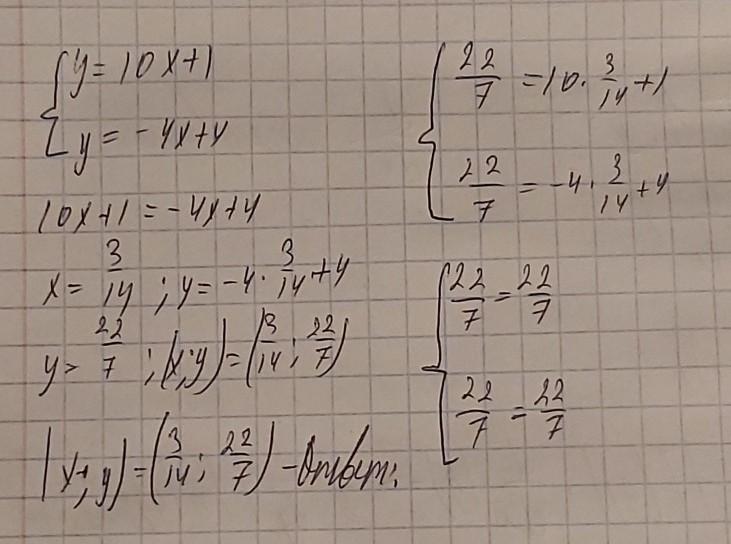 { y = 10x+1
y = -4x+4
10x+1 = -4x+4
x = 3/14 ; y = -4 · 3/14 + 4
y = 22/7 ; (x;y) = (3/14 ; 22/7)
(x; y) = (3/14 ; 22/7) - Ответ.
{ 22/7 = 10 · 3/14 + 1
22/7 = -4 · 3/14 + 4
{ 22/7 = 22/7
22/7 = 22/7